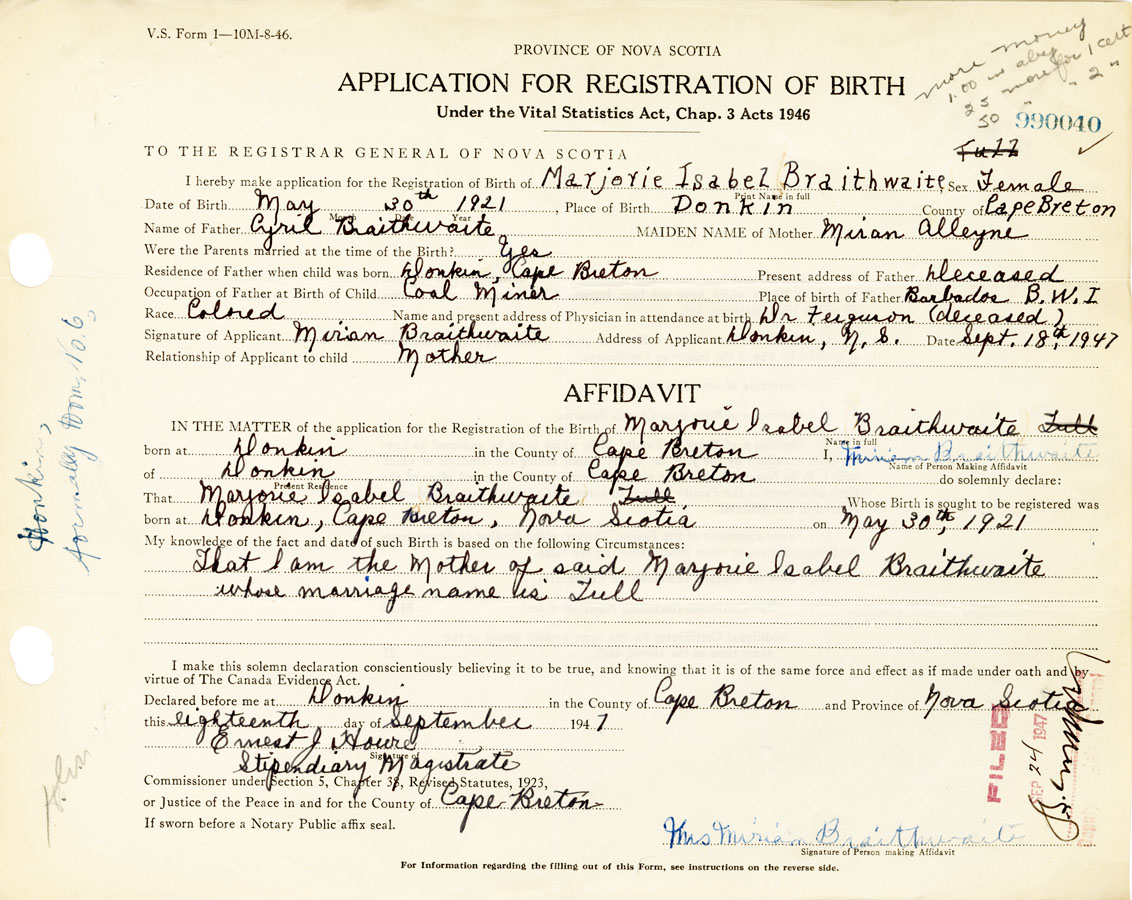 V.S. Form 1—10M-8-46.
more money
1.00 in
25 more for 1 cert
50 " " 2 "
PROVINCE OF NOVA SCOTIA
APPLICATION FOR REGISTRATION OF BIRTH
Under the Vital Statistics Act, Chap. 3 Acts 1946
990040
TO THE REGISTRAR GENERAL OF NOVA SCOTIA Tull
I hereby make application for the Registration of Birth of Marjorie Isabel Braithwaite Sex Female
Print Name in full
Date of Birth May 30th 1921, Place of Birth Donkin County of Cape Breton
Month Day Year
Name of Father Cyril Braithwaite MAIDEN NAME of Mother Miran Alleyne
Were the Parents married at the time of the Birth? Yes
Residence of Father when child was born Donkin, Cape Breton Present address of Father Deceased
Occupation of Father at Birth of Child Coal Miner Place of birth of Father Barbados B.W.I
Race Colored Name and present address of Physician in attendance at birth Dr Ferguson (deceased)
Signature of Applicant Mirian Braithwaite Address of Applicant Donkin, N.S. Date Sept. 18th, 1947
Relationship of Applicant to child Mother
AFFIDAVIT
IN THE MATTER of the application for the Registration of the Birth of Marjorie Isabel Braithwaite Tull
Name in full
born at Donkin in the County of Cape Breton I, Miriam Braithwaite
Name of Person Making Affidavit
of Donkin in the County of Cape Breton do solemnly declare:
Present Residence
That Marjorie Isabel Braithwaite Tull Whose Birth is sought to be registered was
born at Donkin, Cape Breton, Nova Scotia on May 30th, 1921
My knowledge of the fact and date of such Birth is based on the following Circumstances:
That I am the Mother of said Marjorie Isabel Braithwaite
whose marriage name is Tull
I make this solemn declaration conscientiously believing it to be true, and knowing that it is of the same force and effect as if made under oath and by
virtue of The Canada Evidence Act.
Declared before me at Donkin in the County of Cape Breton and Province of Nova Scotia
this eighteenth day of September 1947
Ernest J Houre
Signature of
Stipendiary Magistrate
Commissioner under Section 5, Chapter 38, Revised Statutes, 1923,
or Justice of the Peace in and for the County of Cape Breton
If sworn before a Notary Public affix seal.
Mrs Miriam Braithwaite
Signature of Person making Affidavit
For Information regarding the filling out of this Form, see instructions on the reverse side.
Donkin,
formally Dom. No. 6
FILED
SEP 24 1947